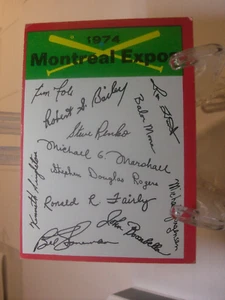 1974
Montreal Expos
Tim Foli
Robert S. Bailey
Balor Moore
Steve Renko
Michael G. Marshall
Stephen Douglas Rogers
Ronald R Fairly
Kenneth Singleton
John Boccabella
Bill Stoneman